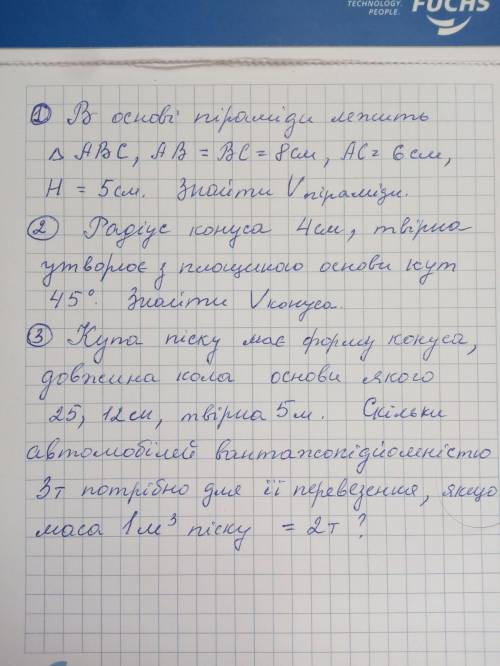 TECHNOLOGY.
PEOPLE.
FUCHS
① В основі піраміди лежить
Δ ABC, AB = BC = 8см, AC = 6см,
H = 5см. Знайти Vпіраміди.
② Радіус конуса 4см, твірна
утворює з площиною основи кут
45°. Знайти Vконуса.
③ Купа піску має форму конуса,
довжина кола основи якого
25,12см, твірна 5м. Скільки
автомобілей вантажопідйомністю
3т потрібно для її перевезення, якщо
маса 1м³ піску = 2т ?